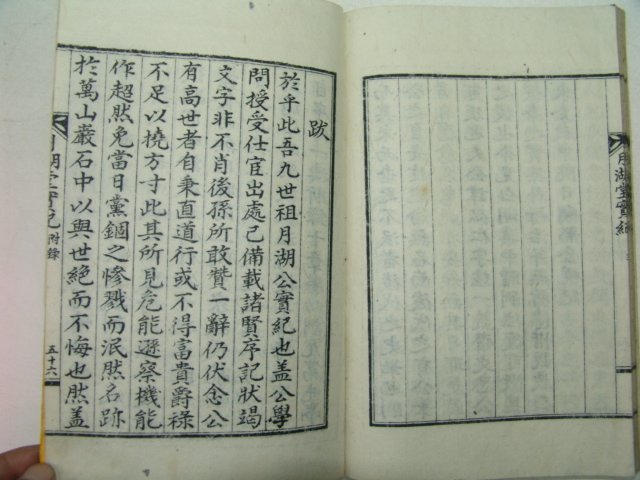 月湖堂實紀
跋
於乎此吾九世祖月湖公實紀也盖公學
問授受仕宦出處已備載諸賢序記狀竭
文字非不肖後孫所敢贊一辭仍伏念公
有高世者自秉直道行或不得富貴爵祿
不足以撓方寸此其所見危能避察機能
作超然免當日黨錮之慘戮而泯然名跡
於萬山巖石中以與世絶而不悔也然盖
月湖堂實紀 附錄 五十六